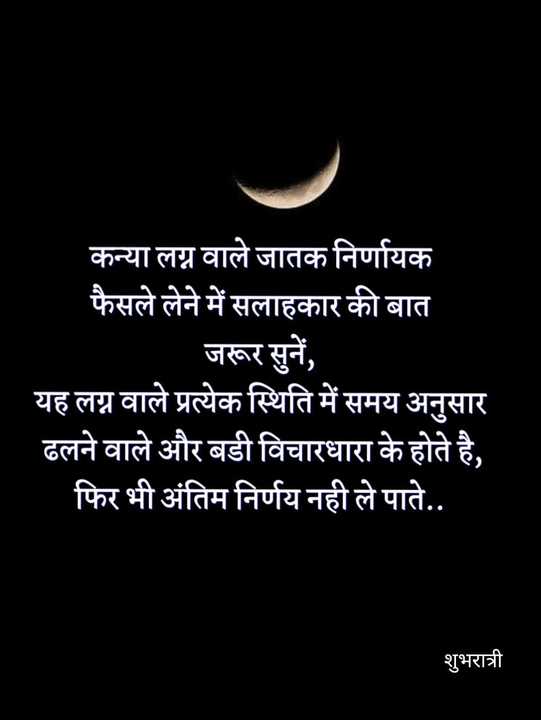 कन्या लग्न वाले जातक निर्णायक
फैसले लेने में सलाहकार की बात
जरूर सुनें,
यह लग्न वाले प्रत्येक स्थिति में समय अनुसार
ढलने वाले और बडी विचारधारा के होते है,
फिर भी अंतिम निर्णय नही ले पाते..
शुभरात्री